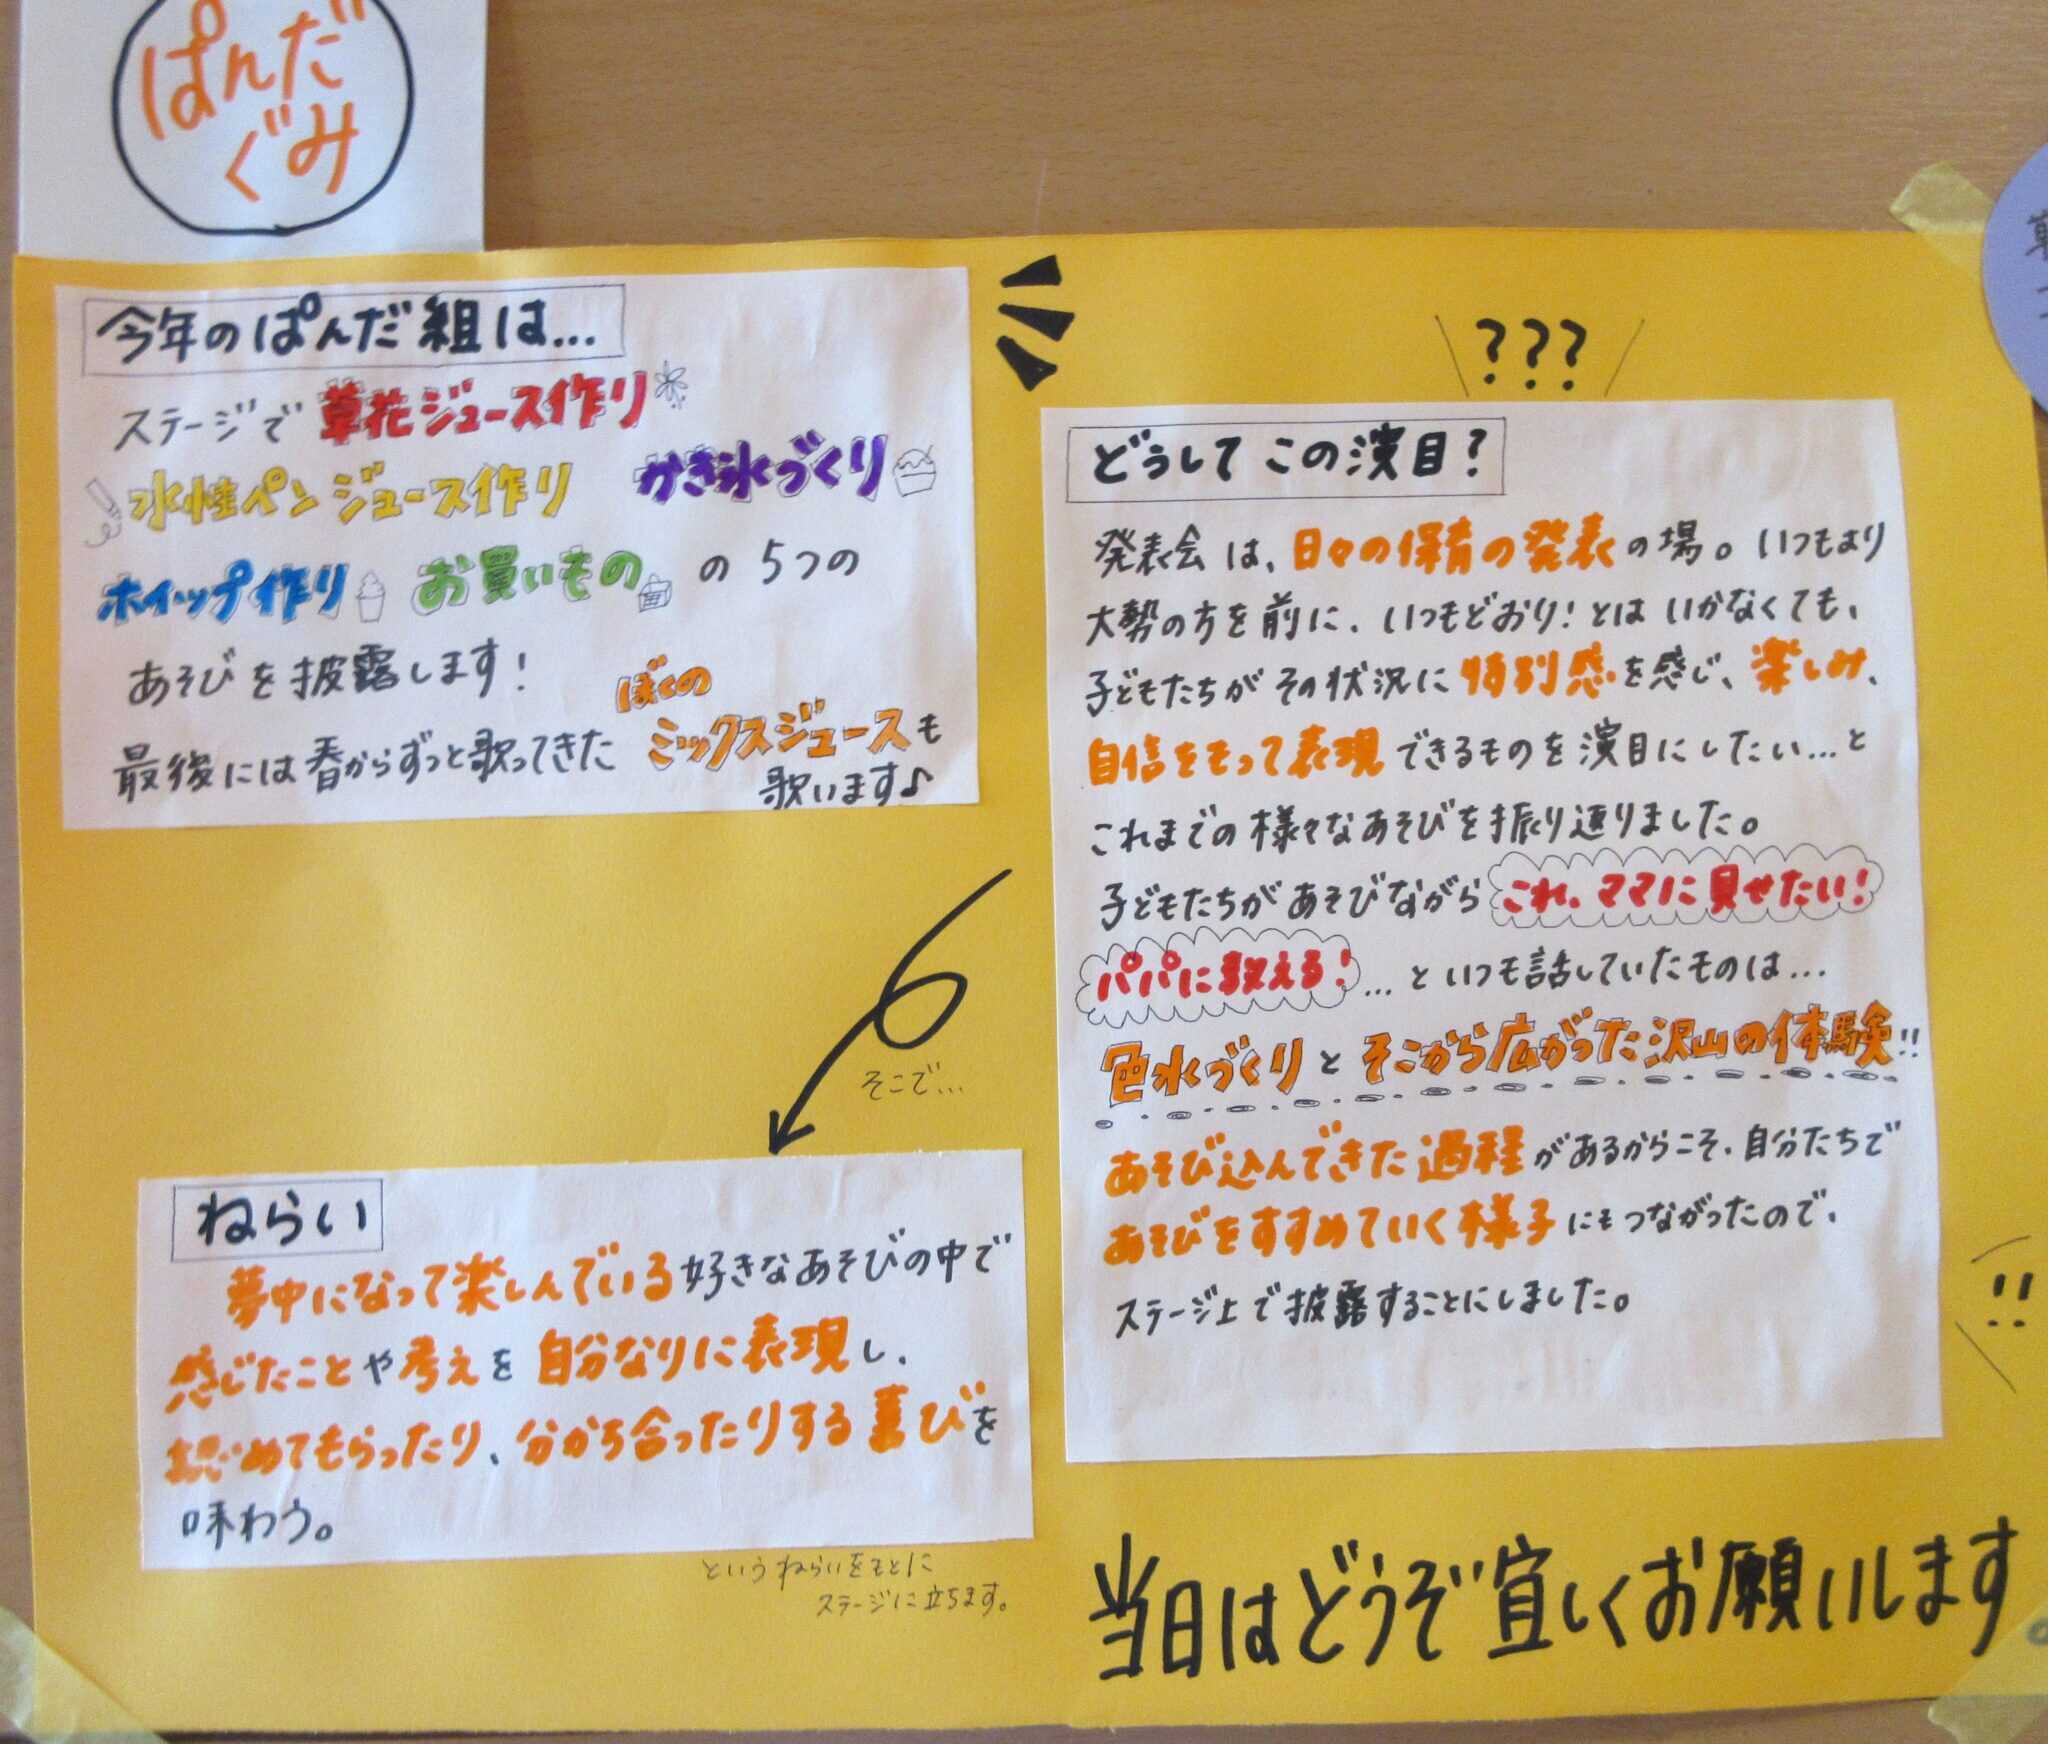 ぱんだ
ぐみ
今年のぱんだ組は…
ステージで 草花ジュース作り
水性ペンジュース作り かき氷づくり
ホイップ作り お買いもの の5つの
あそびを披露します!
最後には春からずっと歌ってきた ぼくの
ミックスジュースも
歌います♪
???
どうしてこの演目?
発表会は、日々の保育の発表の場。いつもより
大勢の方を前に、いつもどおり!とはいかなくても、
子どもたちがその状況に特別感を感じ、楽しみ、
自信をもって表現できるものを演目にしたい…と
これまでの様々なあそびを振り返りました。
子どもたちがあそびながら これ、ママに見せたい!
パパに教える! …といつも話していたものは…
色水づくりとそこから広がった沢山の体験!!
あそび込んできた過程があるからこそ、自分たちで
あそびをすすめていく様子にもつながったので、
ステージ上で披露することにしました。
!!
そこで…
ねらい
夢中になって楽しんでいる好きなあそびの中で
感じたことや考えを自分なりに表現し、
認めてもらったり、分かち合ったりする喜びを
味わう。
というねらいをもとに
ステージに立ちます。
当日はどうぞ宜しくお願いします。